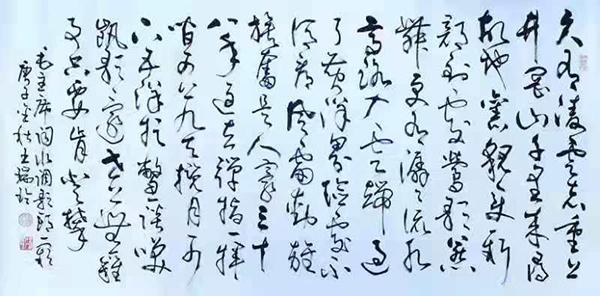 久有凌云志重上
井岡山千里来尋
故地舊貌变新
颜到處莺歌燕
舞更有潺潺流水
高路入云端过
了黄洋界险處不
须看風雷動旌
旗奮是人寰三十
八年过去弹指一挥
间可上九天揽月可
下五洋捉鳖谈笑
凯歌还世上无難
事只要肯登攀
毛主席词水调歌頭一首
庚子金秋